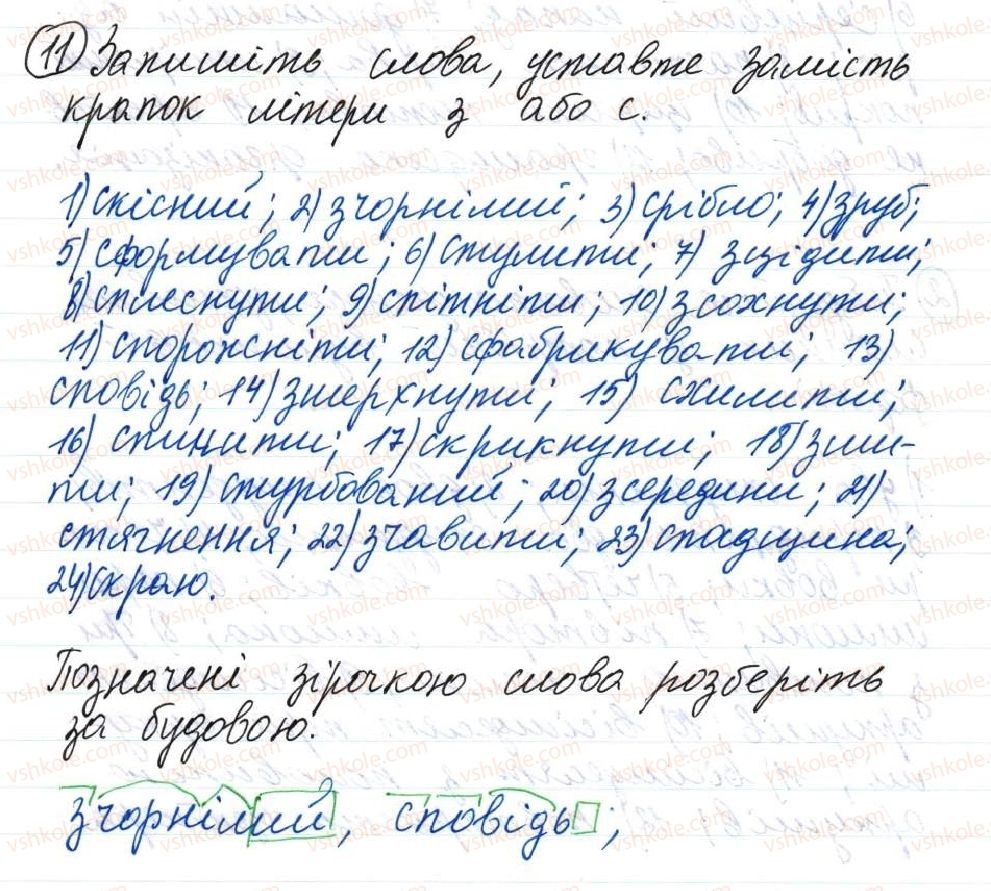 11 Запишіть слова, уставте замість
крапок літери з або с.
1) скісний; 2) зчорнілий; 3) срібло; 4) зруб;
5) сформувати; 6) стулити; 7) зцідити;
8) сплеснути; 9) спітніти; 10) зсохнути;
11) спорожніти; 12) сфабрикувати; 13)
сповідь; 14) зшерхнути; 15) схилити;
16) спинити; 17) скрикнути; 18) зши-
ти; 19) стурбований; 20) зсередини; 21)
стягнення; 22) зчавити; 23) спадщина;
24) скраю.
Позначені зірочкою слова розберіть
за будовою.
зчорнілий, сповідь;